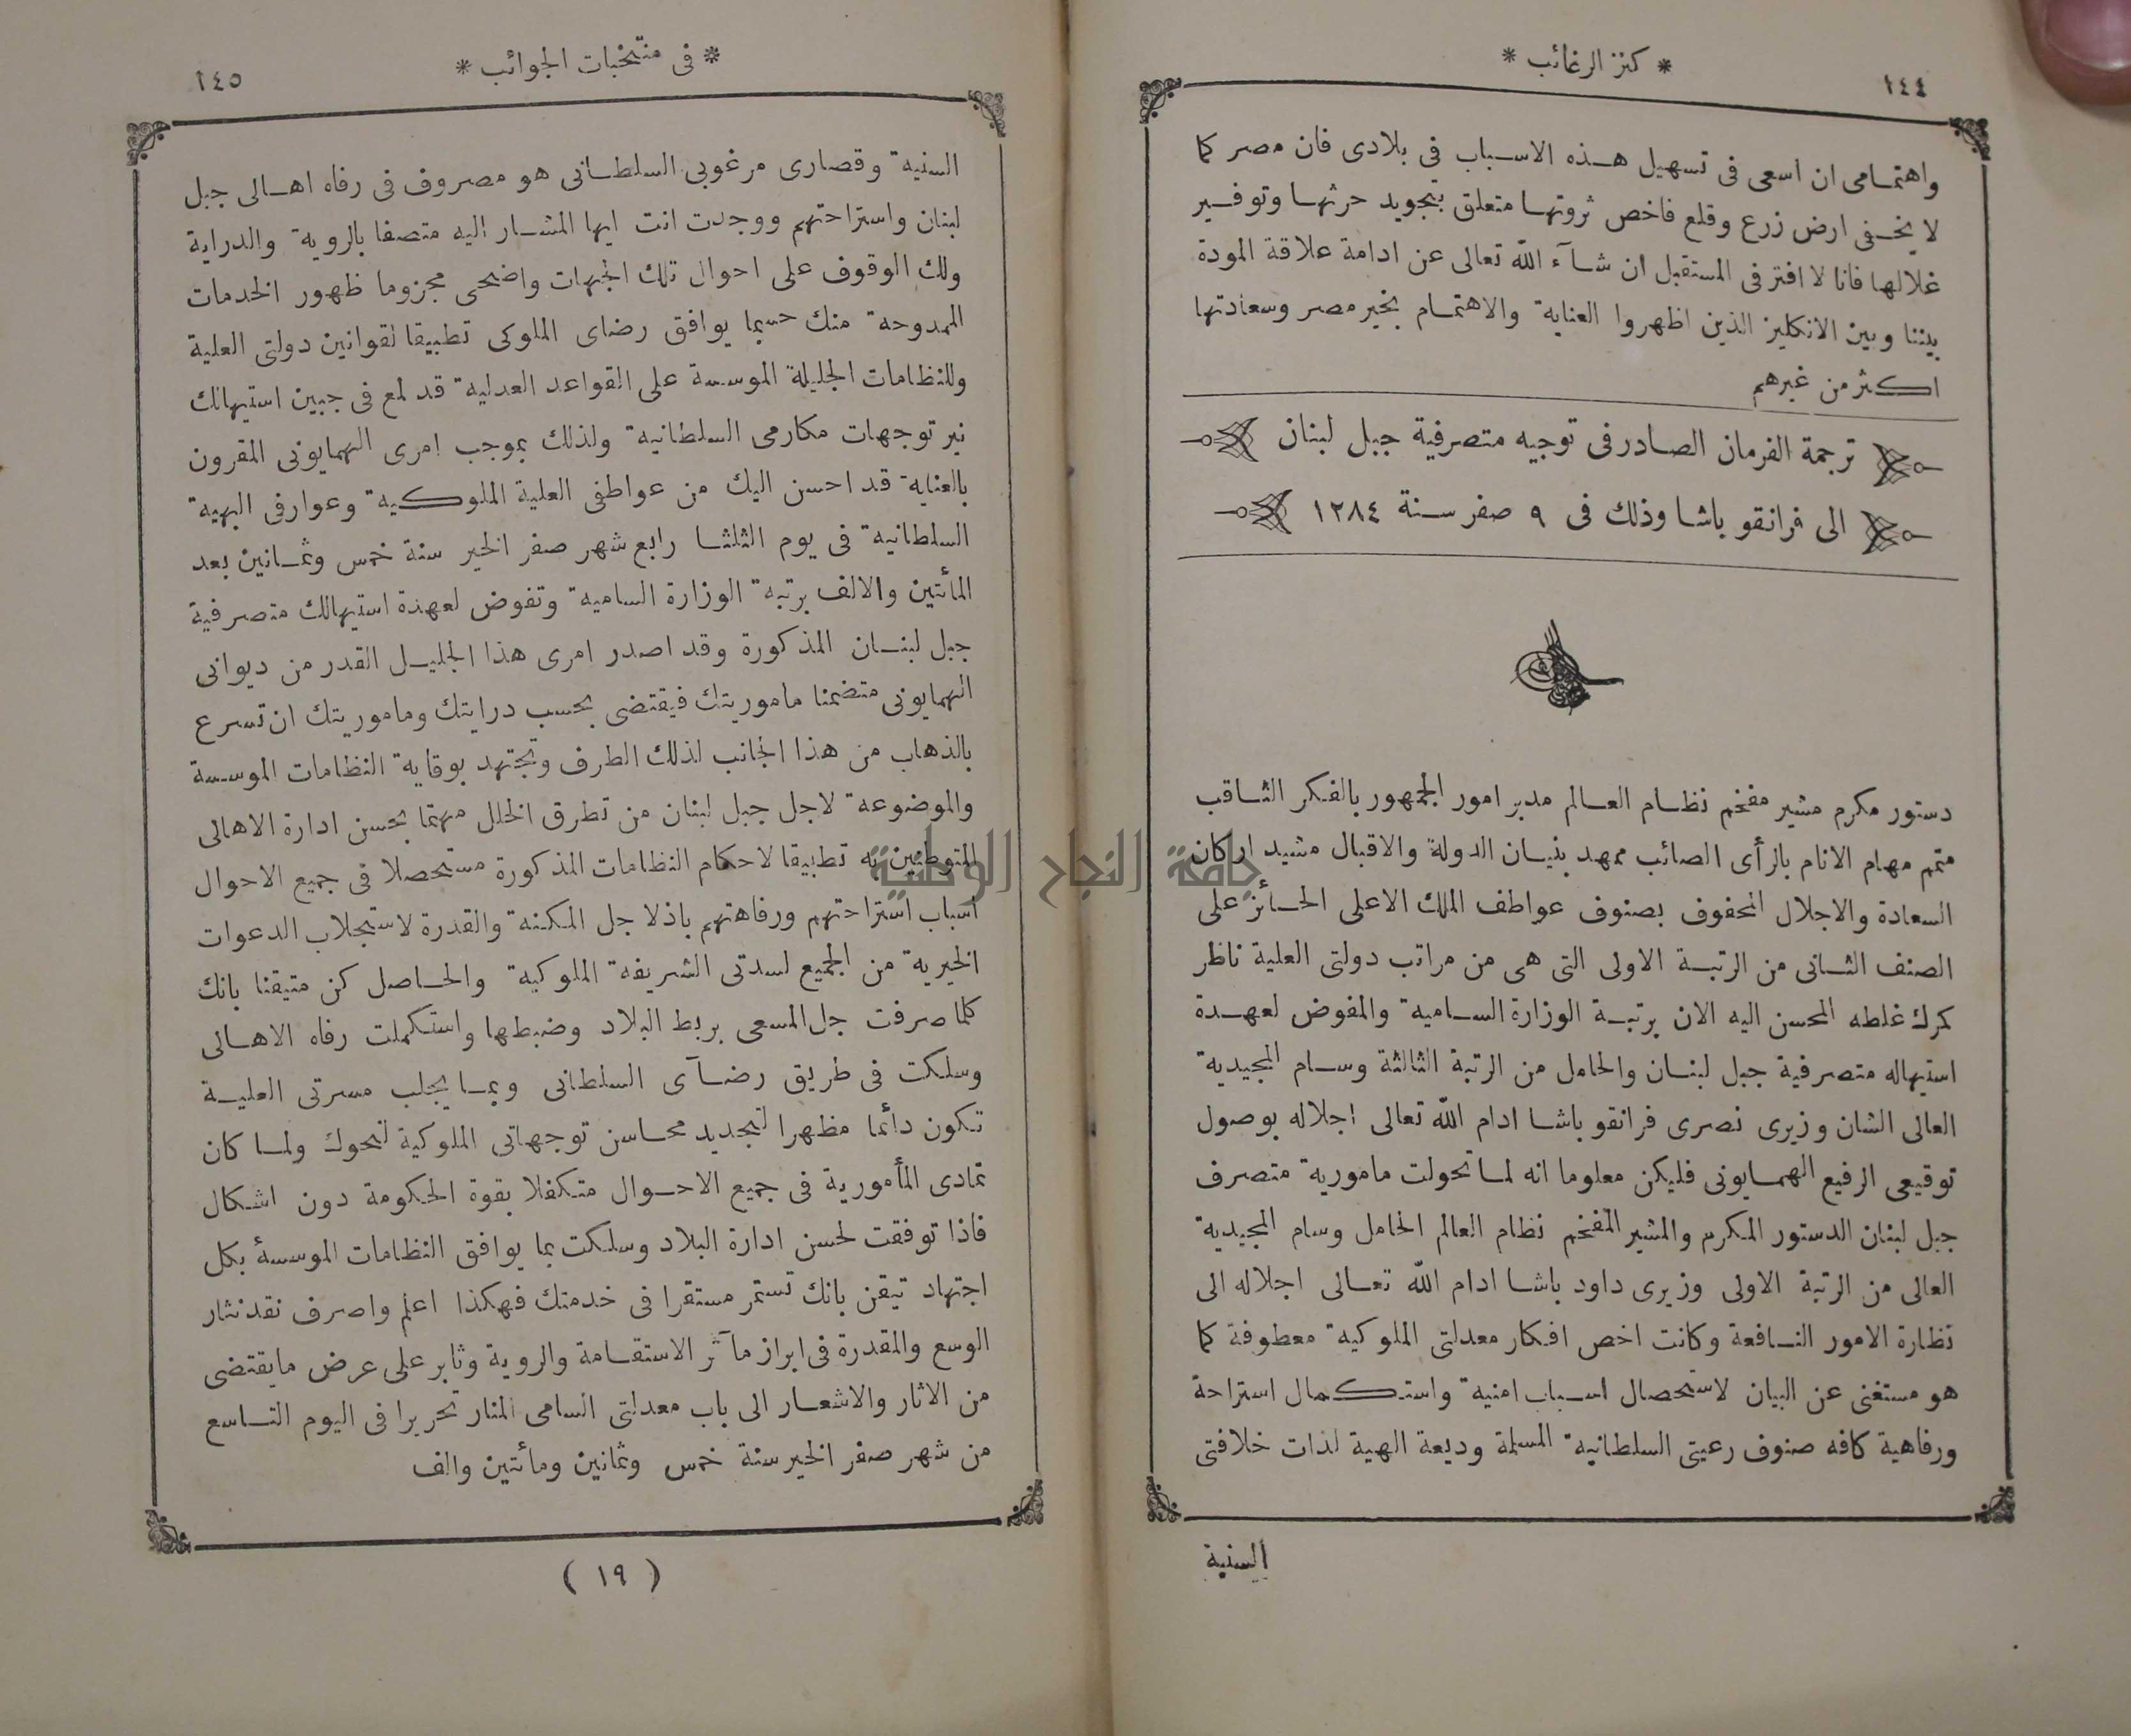 ١٤٤
* كنز الرغائب *
واهتمامى ان اسعى فى تسهيل هذه الاسباب فى بلادى فان مصر كما
لا يخفى ارض زرع وقلع فاخص ثروتها متعلق بتجويد حرثها وتوفير
غلالها فانا لا افتر فى المستقبل ان شآء الله تعالى عن ادامة علاقة المودة
بيننا وبين الانكليز الذين اظهروا العناية والاهتمام بخير مصر وسعادتها
اكثر من غيرهم
ترجمة الفرمان الصادر فى توجيه متصرفية جبل لبنان
الى فرانقو باشا وذلك فى ٩ صفر سنة ١٢٨٤
دستور مكرم مشير مفخم نظام العالم مدبر امور الجمهور بالفكر الثاقب
متمم مهام الانام بالرأى الصائب ممهد بنيان الدولة والاقبال مشيد اركان
السعادة والاجلال المحفوف بصنوف عواطف الملك الاعلى الحائز على
الصنف الثانى من الرتبة الاولى التى هى من مراتب دولتى العلية ناظر
كمرك غلطه المحسن اليه الان برتبة الوزارة السامية والمفوض لعهدة
استيهاله متصرفية جبل لبنان والحامل من الرتبة الثالثة وسام المجيدية
العالى الشان وزيرى نصرى فرانقو باشا ادام الله تعالى اجلاله بوصول
توقيعى الرفيع الهمايونى فليكن معلوما انه لما تحولت مامورية متصرف
جبل لبنان الدستور المكرم والمشير المفخم نظام العالم الحامل وسام المجيدية
العالى من الرتبة الاولى وزيرى داود باشا ادام الله تعالى اجلاله الى
نظارة الامور النافعة وكانت اخص افكار معدلتى الملوكية معطوفة كما
هو مستغنى عن البيان لاستحصال اسباب امنية واستكمال استراحة
ورفاهية كافه صنوف رعيتى السلطانية المسلمة وديعة الهية لذات خلافتى
السنية
* فى منتخبات الجوائب *
١٤٥
السنية وقصارى مرغوبى السلطانى هو مصروف فى رفاه اهالى جبل
لبنان واستراحتهم ووجدت انت ايها المشار اليه متصفا بالروية والدراية
ولك الوقوف على احوال تلك الجهات واضحى مجزوما ظهور الخدمات
الممدوحة منك حسبما يوافق رضاى الملوكى تطبيقا لقوانين دولتى العلية
وللنظامات الجليلة الموسسة على القواعد العدلية قد لمع فى جبين استيهالك
نير توجهات مكارمى السلطانية ولذلك بموجب امرى الهمايونى المقرون
بالعناية قد احسن اليك من عواطفى العلية الملوكية وعوارفى البهية
السلطانية فى يوم الثلثا رابع شهر صفر الخير سنة خمس وثمانين بعد
المأتين والالف برتبة الوزارة السامية وتفوض لعهدة استيهالك متصرفية
جبل لبنان المذكورة وقد اصدر امرى هذا الجليل القدر من ديوانى
الهمايونى متضمنا ماموريتك فيقتضى بحسب درايتك وماموريتك ان تسرع
بالذهاب من هذا الجانب لذلك الطرف وتجتهد بوقاية النظامات الموسسة
والموضوعة لاجل جبل لبنان من تطرق الخلل مهتما بحسن ادارة الاهالى
المتوطنين به تطبيقا لاحكام النظامات المذكورة مستحصلا فى جميع الاحوال
اسباب استراحتهم ورفاهتهم باذلا جل المكنة والقدرة لاستجلاب الدعوات
الخيرية من الجميع لسدتى الشريفة الملوكية والحاصل كن متيقنا بانك
كلما صرفت جل المسعى بربط البلاد وضبطها واستكملت رفاه الاهالى
وسلكت فى طريق رضآى السلطانى وبما يجلب مسرتى العلية
تكون دأئما مظهرا لتجديد محاسن توجهاتى الملوكية لنحوك ولما كان
تمادى المأمورية فى جميع الاحوال متكفلا بقوة الحكومة دون اشكال
فاذا توفقت لحسن ادارة البلاد وسلكت بما يوافق النظامات الموسسة بكل
اجتهاد تيقن بانك تستمر مستقرا فى خدمتك فهكذا اعلم واصرف نقد نثار
الوسع والمقدرة فى ابراز مآثر الاستقامة والروية وثابر على عرض ما يقتضى
من الاثار والاشعار الى باب معدلتى السامى المنار تحريرا فى اليوم التاسع
من شهر صفر الخير سنة خمس وثمانين ومأتين والف
( ١٩ )
جامعة النجاح الوطنية